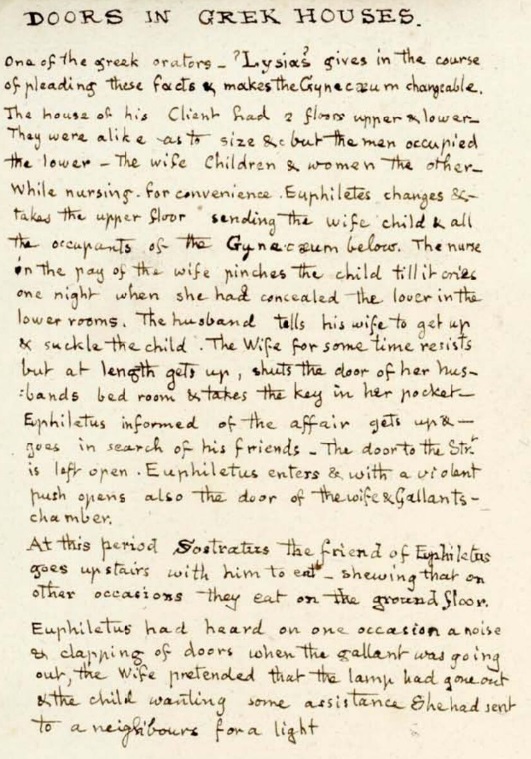 DOORS IN GREK HOUSES.
One of the greek orators - ?Lysias? gives in the course
of pleading these facts & makes the Gynecæum changeable.
The house of his Client had 2 floors upper & lower -
They were alike as to size &c but the men occupied
the lower - The wife Children & women the other -
While nursing. for convenience. Euphiletes changes & -
takes the upper floor sending the wife child & all
the occupants of the Gynecæum below. The nurse
in the pay of the wife pinches the child till it cries
one night when she had concealed the lover in the
lower rooms. The husband tells his wife to get up
& suckle the child. The Wife for some time resists
but at length gets up, shuts the door of her hus-
:bands bed room & takes the key in her pocket -
Ephiletus informed of the affair gets up & -
goes in search of his friends - The door to the Str.t
is left open. Euphiletus enters & with a violent
push opens also the door of the wife & Gallants -
chamber.
At this period Sostratus the friend of Euphiletus
goes upstairs with him to eat - shewing that on
other occasions they eat on the ground floor.
Euphiletus had heard on one occasion a noise
& clapping of doors when the gallant was going
out, the Wife pretended that the lamp had gone out
& the child wanting some assistance She had sent
to a neighbours for a light